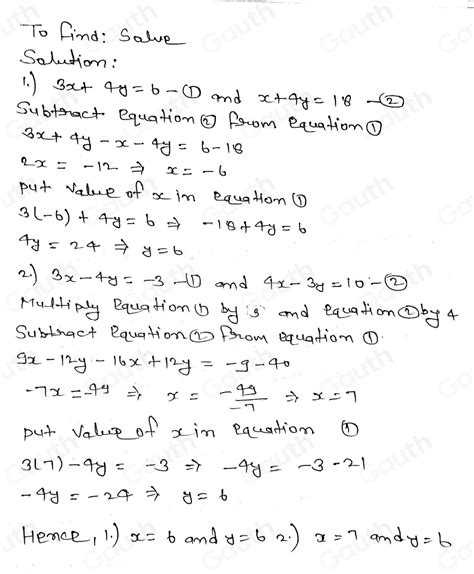 To find: Solve
Solution:
1.) 3x + 4y = 6 - ① and x + 4y = 18 - ②
Subtract Equation ② from Equation ①
3x + 4y - x - 4y = 6 - 18
2x = -12 ⇒ x = -6
put value of x in equation ①
3(-6) + 4y = 6 ⇒ -18 + 4y = 6
4y = 24 ⇒ y = 6
2.) 3x - 4y = -3 - ① and 4x - 3y = 10 - ②
Multiply Equation ① by 3 and equation ② by 4
Subtract Equation ② from equation ①.
9x - 12y - 16x + 12y = -9 - 40
-7x = -49 ⇒ x = -49/-7 ⇒ x = 7
put value of x in equation ①
3(7) - 4y = -3 ⇒ -4y = -3 - 21
-4y = -24 ⇒ y = 6
Hence, 1.) x = 6 and y = 6 2.) x = 7 and y = 6